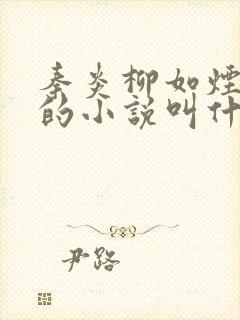 秦炎柳如煙
的小説叫什
尹路